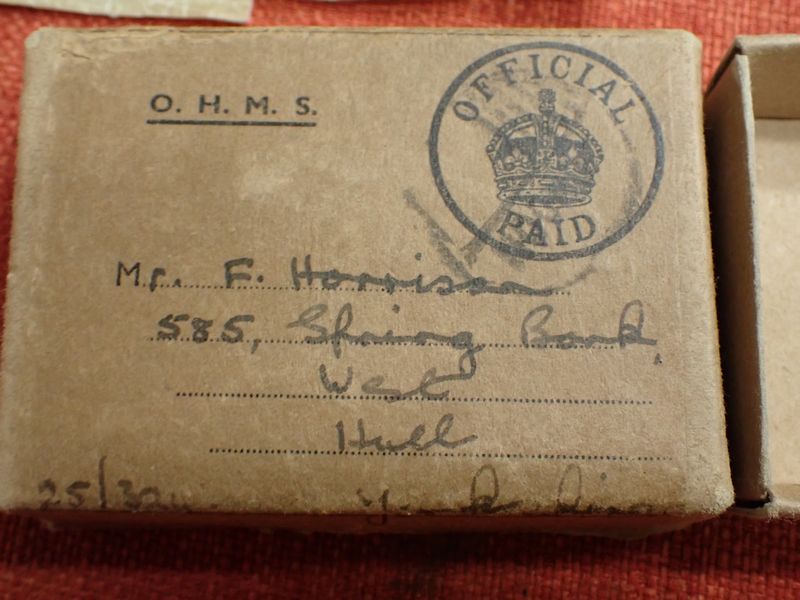 O. H. M. S.
OFFICIAL
PAID
Mr. F. Harrison
585, Spring Bank,
West
Hull